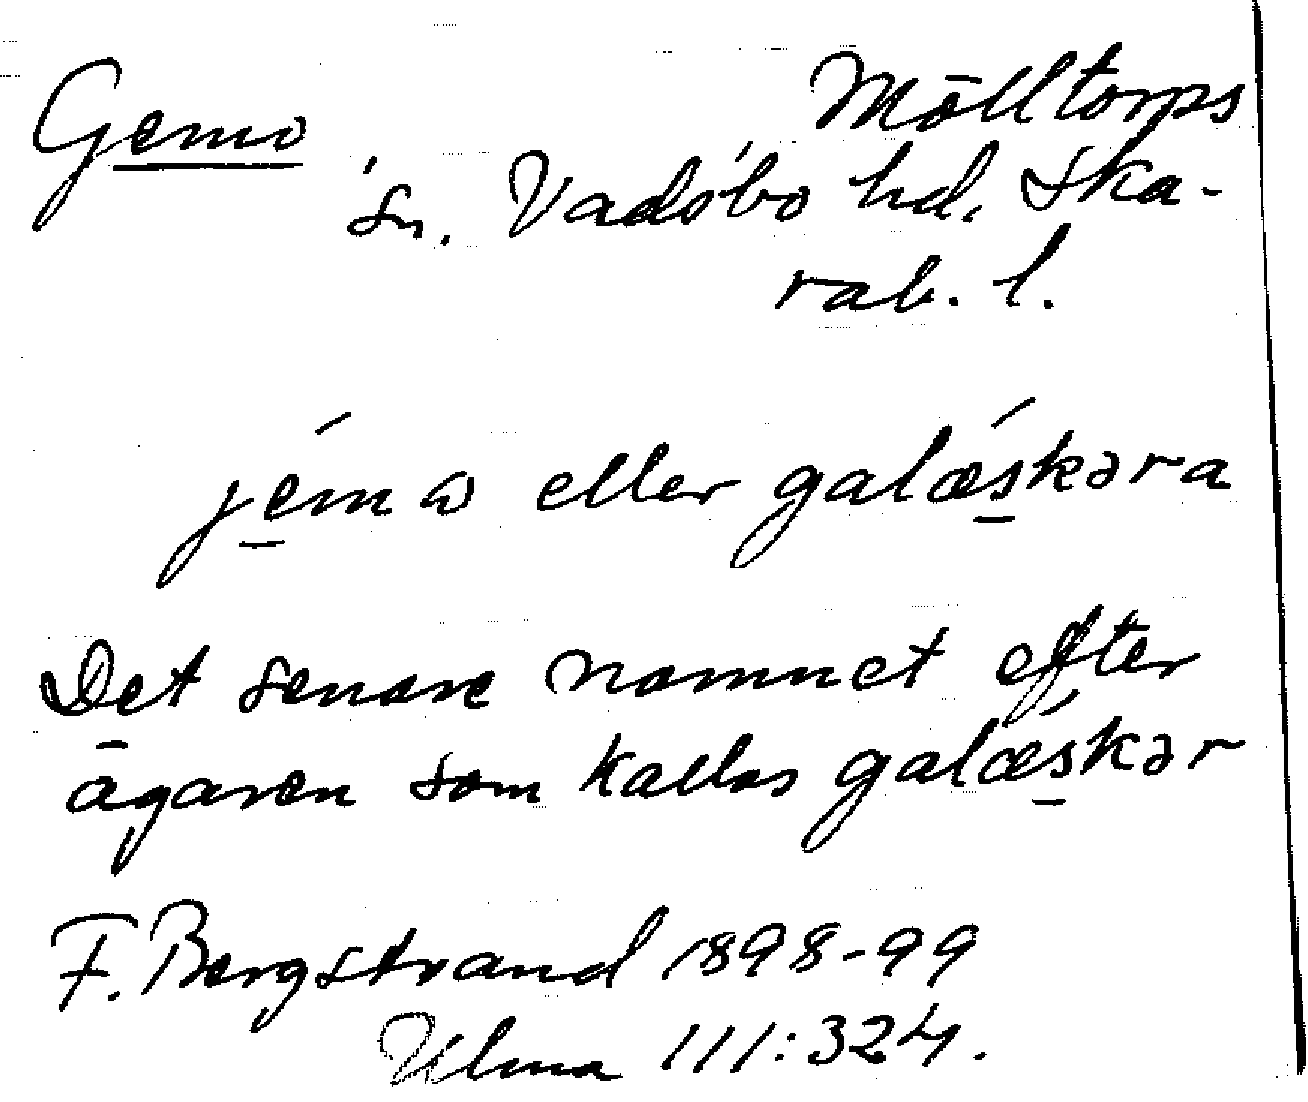 Gemo Mölltorps
sn. Vadsbo hd, Ska-
rab. l.
jémω eller galǽskəra
Det senare namnet efter
ägaren som kallas galǽskər
F. Bergstrand 1898-99
Ulma 111:324.